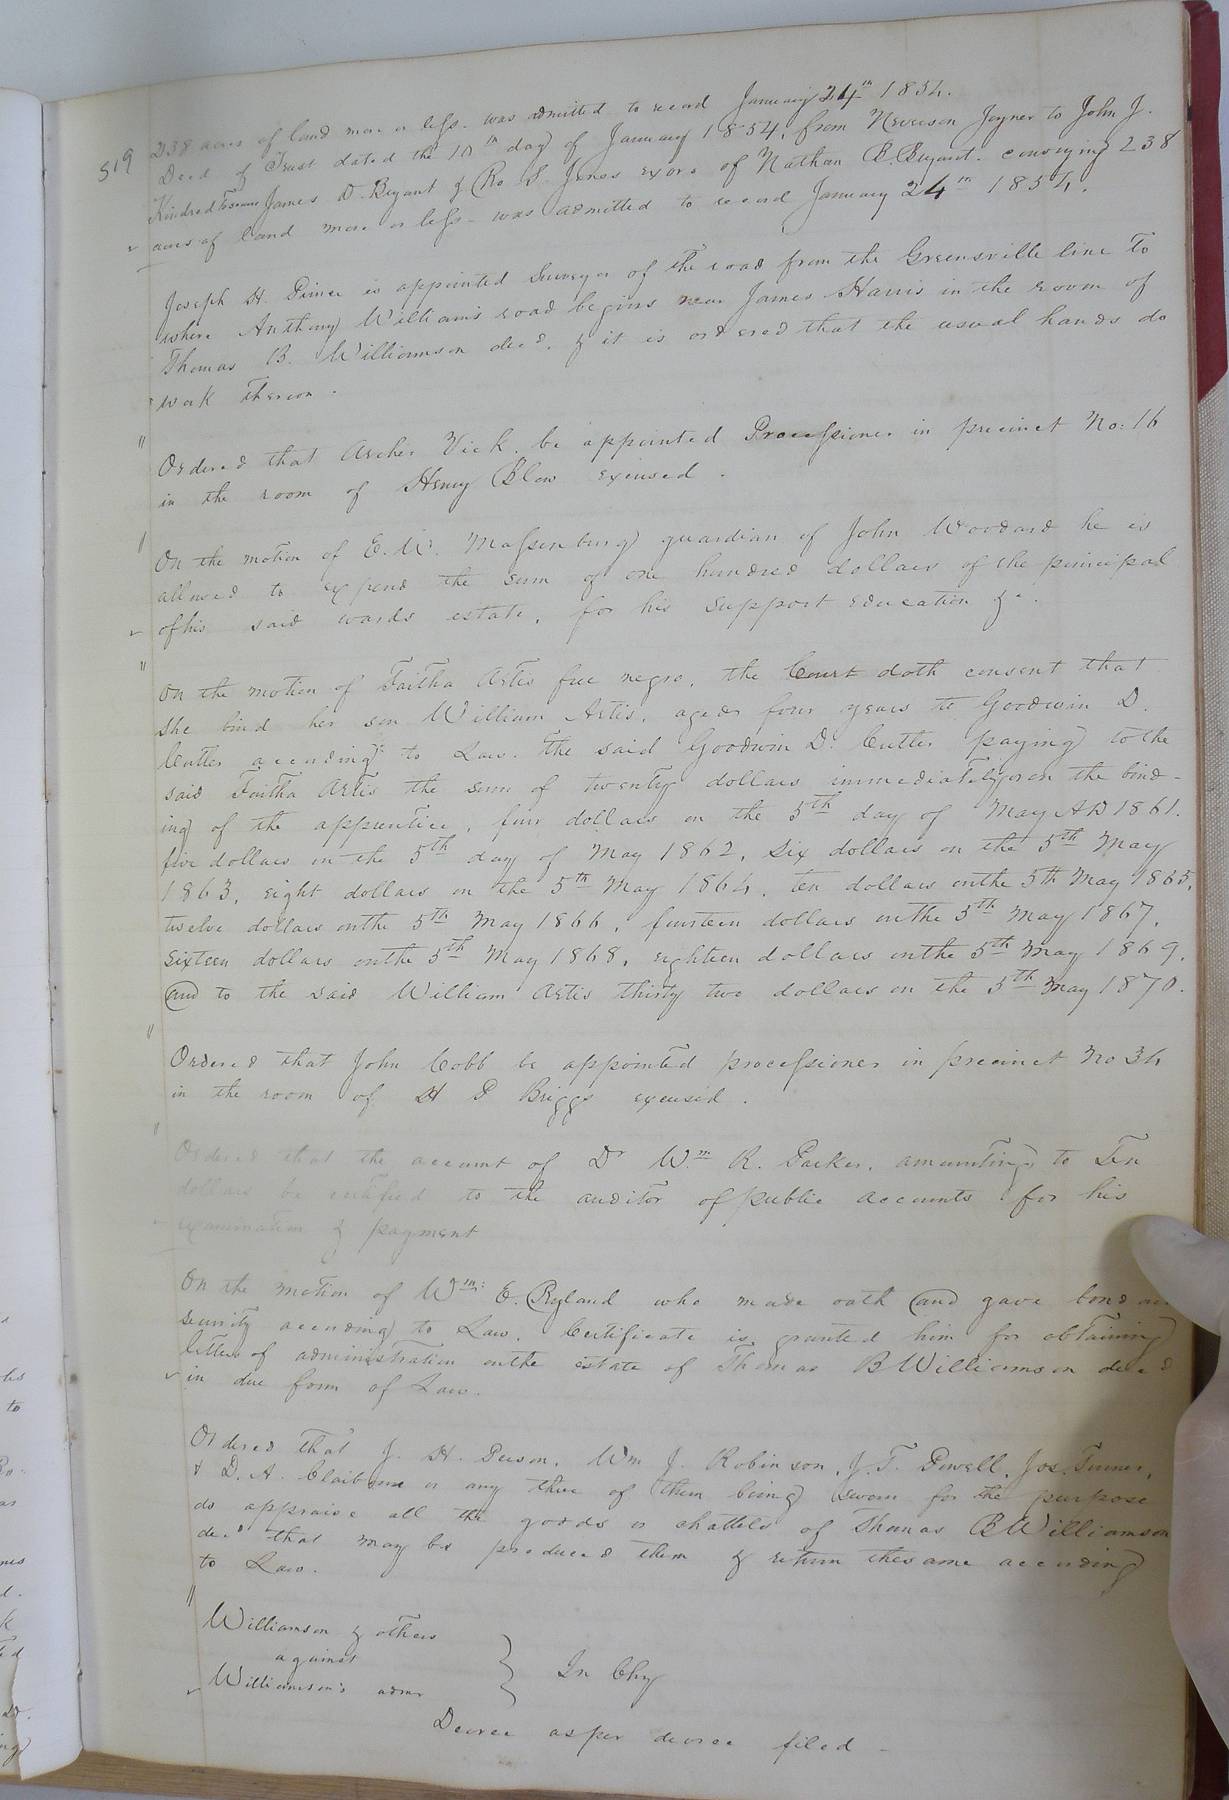 519
238 acres of land more or less. was admitted to record January 24th 1854.
Deed of Trust dated the 10th day of January 1854, from Neverson Joyner to John J.
Kindred Trustee James D. Bryant & Ro. S. Jones exors of Nathan B. Bryant. conveying 238
acres of land more or less - was admitted to record January 24th 1854.
Joseph H. Prince is appointed Surveyor of the road from the Greensville line to
where Anthony William's road begins near James Harris in the room of
Thomas B. Williamson decd. & it is ordered that the usual hands do
work thereon.
Ordered that Archer Vick be appointed Processioner in precinct No: 16
in the room of Henry Blow excused.
On the motion of E. W. Massenburg guardian of John Woodard he is
allowed to expend the sum of one hundred dollars of the principal
of his said wards estate, for his support education &c.
On the motion of Faitha Artis free negro, the Court doth consent that
she bind her son William Artis, aged four years to Goodwin D.
Cutler according to Law. the said Goodwin D. Cutler paying to the
said Faitha Artis the sum of twenty dollars immediately on the bind-
ing of the apprentice, four dollars on the 5th day of May AD 1861.
five dollars on the 5th day of May 1862, six dollars on the 5th May
1863, eight dollars on the 5th May 1864, ten dollars on the 5th May 1865,
twelve dollars on the 5th May 1866, fourteen dollars on the 5th May 1867,
sixteen dollars on the 5th May 1868, eighteen dollars on the 5th May 1869,
and to the said William Artis thirty two dollars on the 5th May 1870.
Ordered that John Cobb be appointed processioner in precinct No 34
in the room of H P Briggs excused.
Ordered that the account of Dr Wm R. Parker, amounting to Ten
dollars be certified to the auditor of public accounts for his
examination & payment
On the motion of Wm: E. Ryland who made oath and gave bond and
security according to Law. Certificate is granted him for obtaining
letters of administration on the estate of Thomas B Williamson decd
in due form of Law.
Ordered that J. H. Person, Wm J. Robinson, J. T. Powell, Jos. Turner,
& D. A. Claiborne or any three of them being sworn for the purpose
do appraise all the goods & chattels of Thomas B Williamson
decd that may be produced them & return the same according
to Law.
Williamson & others
against
Williamson's admr
In Chy
Decree as per decree filed -